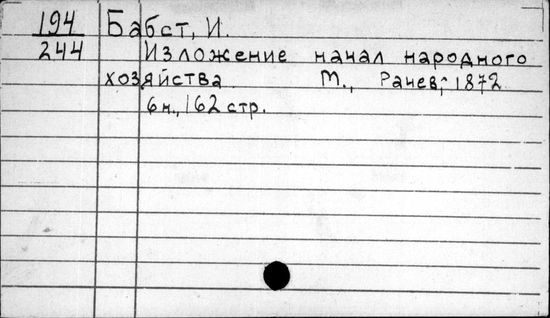 194 Бабст, И.
244 Изложение начал народного
хозяйства М., Рачев, 1872
6н., 162 стр.